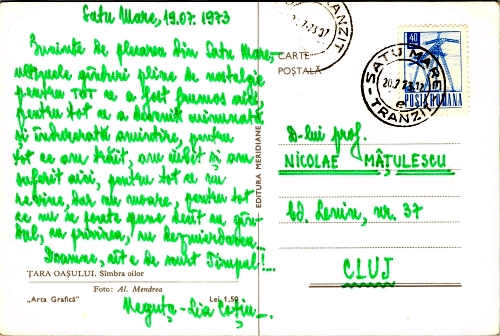 Satu Mare, 19.07.1973
Înainte de plecarea din Satu Mare,
ultimele gânduri pline de nostalgie
pentru tot ce a fost frumos aici,
pentru tot ce a devenit minunată
și îndurerată amintire, pentru
tot ce am trăit, am iubit și am
suferit aici, pentru tot ce nu
revine, dar nu moare, pentru tot
ce nu se poate spune decît cu gân-
dul, cu privirea, cu deznădejdea...
Doamne, cît e de mult Timpul!...
ȚARA OAȘULUI. Sîmbra oilor
Foto: Al. Mendrea
„Arta Grafică"
Lei 1,50
Neguța - Lia
EDITURA MERIDIANE
CARTE
POȘTALĂ
TRANZIT
40
POSTA ROMANA
SATU MARE
20.7.73.12
e
TRANZIT
D-lui prof.
NICOLAE MÂȚULESCU
Bd. Lenin, nr. 37
CLUJ